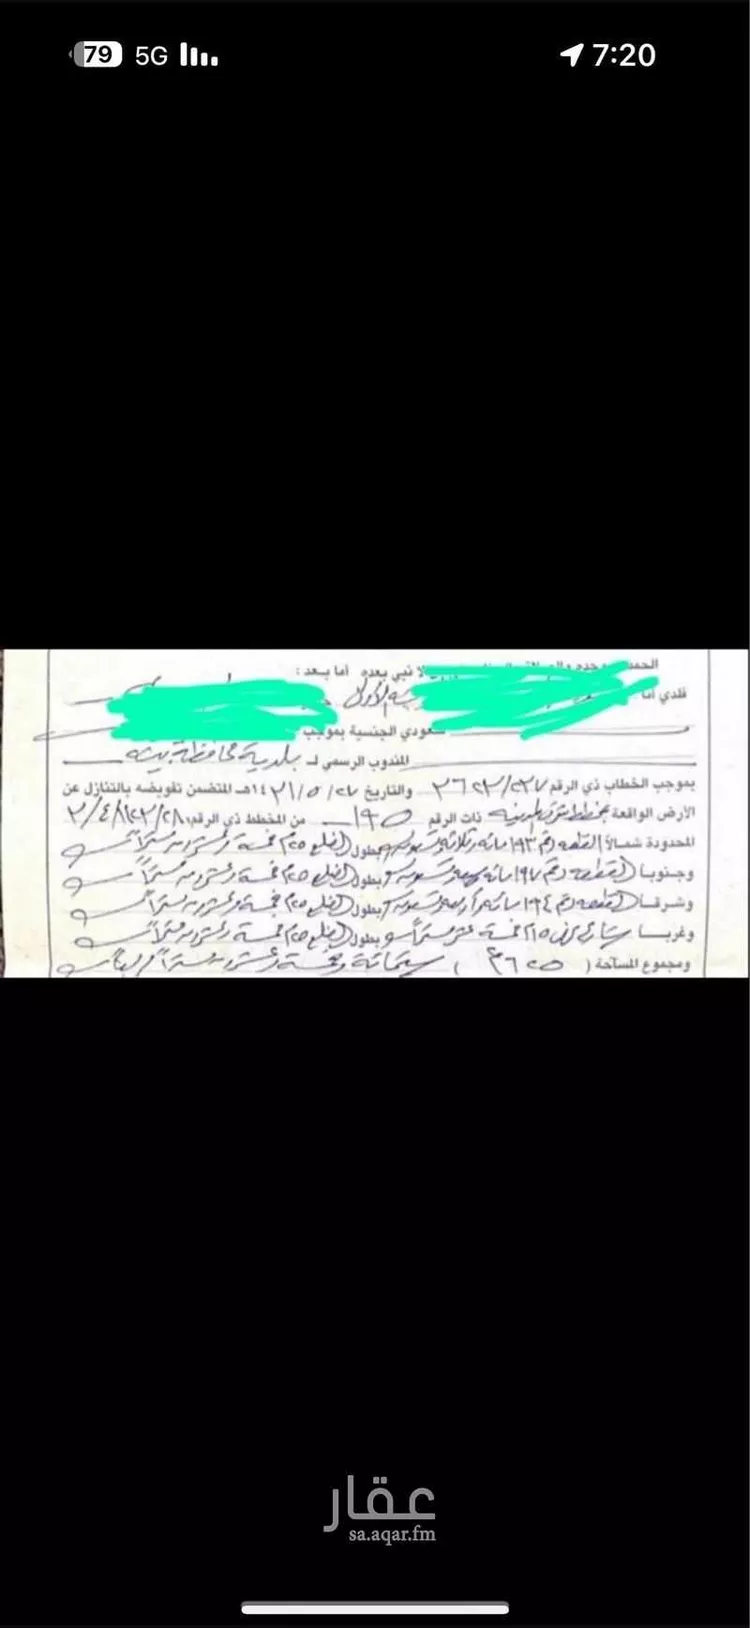 79 5G 7:20
لا نبي بعده أما بعد :
فلدي أنا الأول
سعودي الجنسية بموجب
المندوب الرسمي لـ بلدية محافظة بيشة
بموجب الخطاب ذي الرقم ٣٦٢٣/٢٧ والتاريخ ٢٧ / ٥ / ١٤٢١هـ المتضمن تفويضه بالتنازل عن
الأرض الواقعة بمخطط شرق المدينة ذات الرقم ١٩٥ من المخطط ذي الرقم
المحدودة شمالاً القطعة رقم ١٩٣ مائة وثلاثة وتسعون بطول الضلع ٢٥م خمسة وعشرون متراً
وجنوبا القطعة رقم ١٩٧ مائة سبعة وتسعون بطول الضلع ٢٥م خمسة وعشرون متراً
وشرقا القطعة رقم ١٩٤ مائة وأربعة وتسعون بطول الضلع ٢٥م خمسة وعشرون متراً
وغربا شارع عرض ١٥م خمسة عشر متراً بطول الضلع ٢٥م خمسة وعشرون متراً
ومجموع المساحة ( ٦٢٥م٢ ) ستمائة وخمسة وعشرون متراً
عقار
sa.aqar.fm